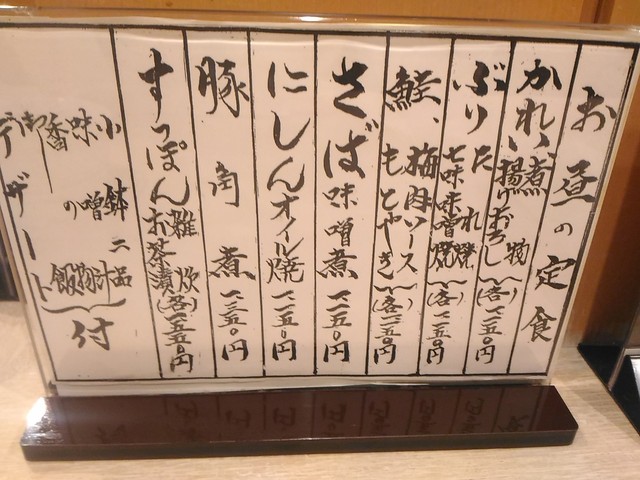 お昼の定食
かれい 煮物
揚げおろし (各)一三五〇円
ぶり たれ焼
七味味噌焼 (各)一二五〇円
鮭、梅肉ソース
もとやき (各)一二五〇円
さば味噌煮 一二五〇円
にしんオイル焼 一二五〇円
豚角煮 一三五〇円
すっぽん 雑炊
お茶漬 (各)一五五〇円
小鉢二品
味噌汁
香の物
御飯
デザート
付